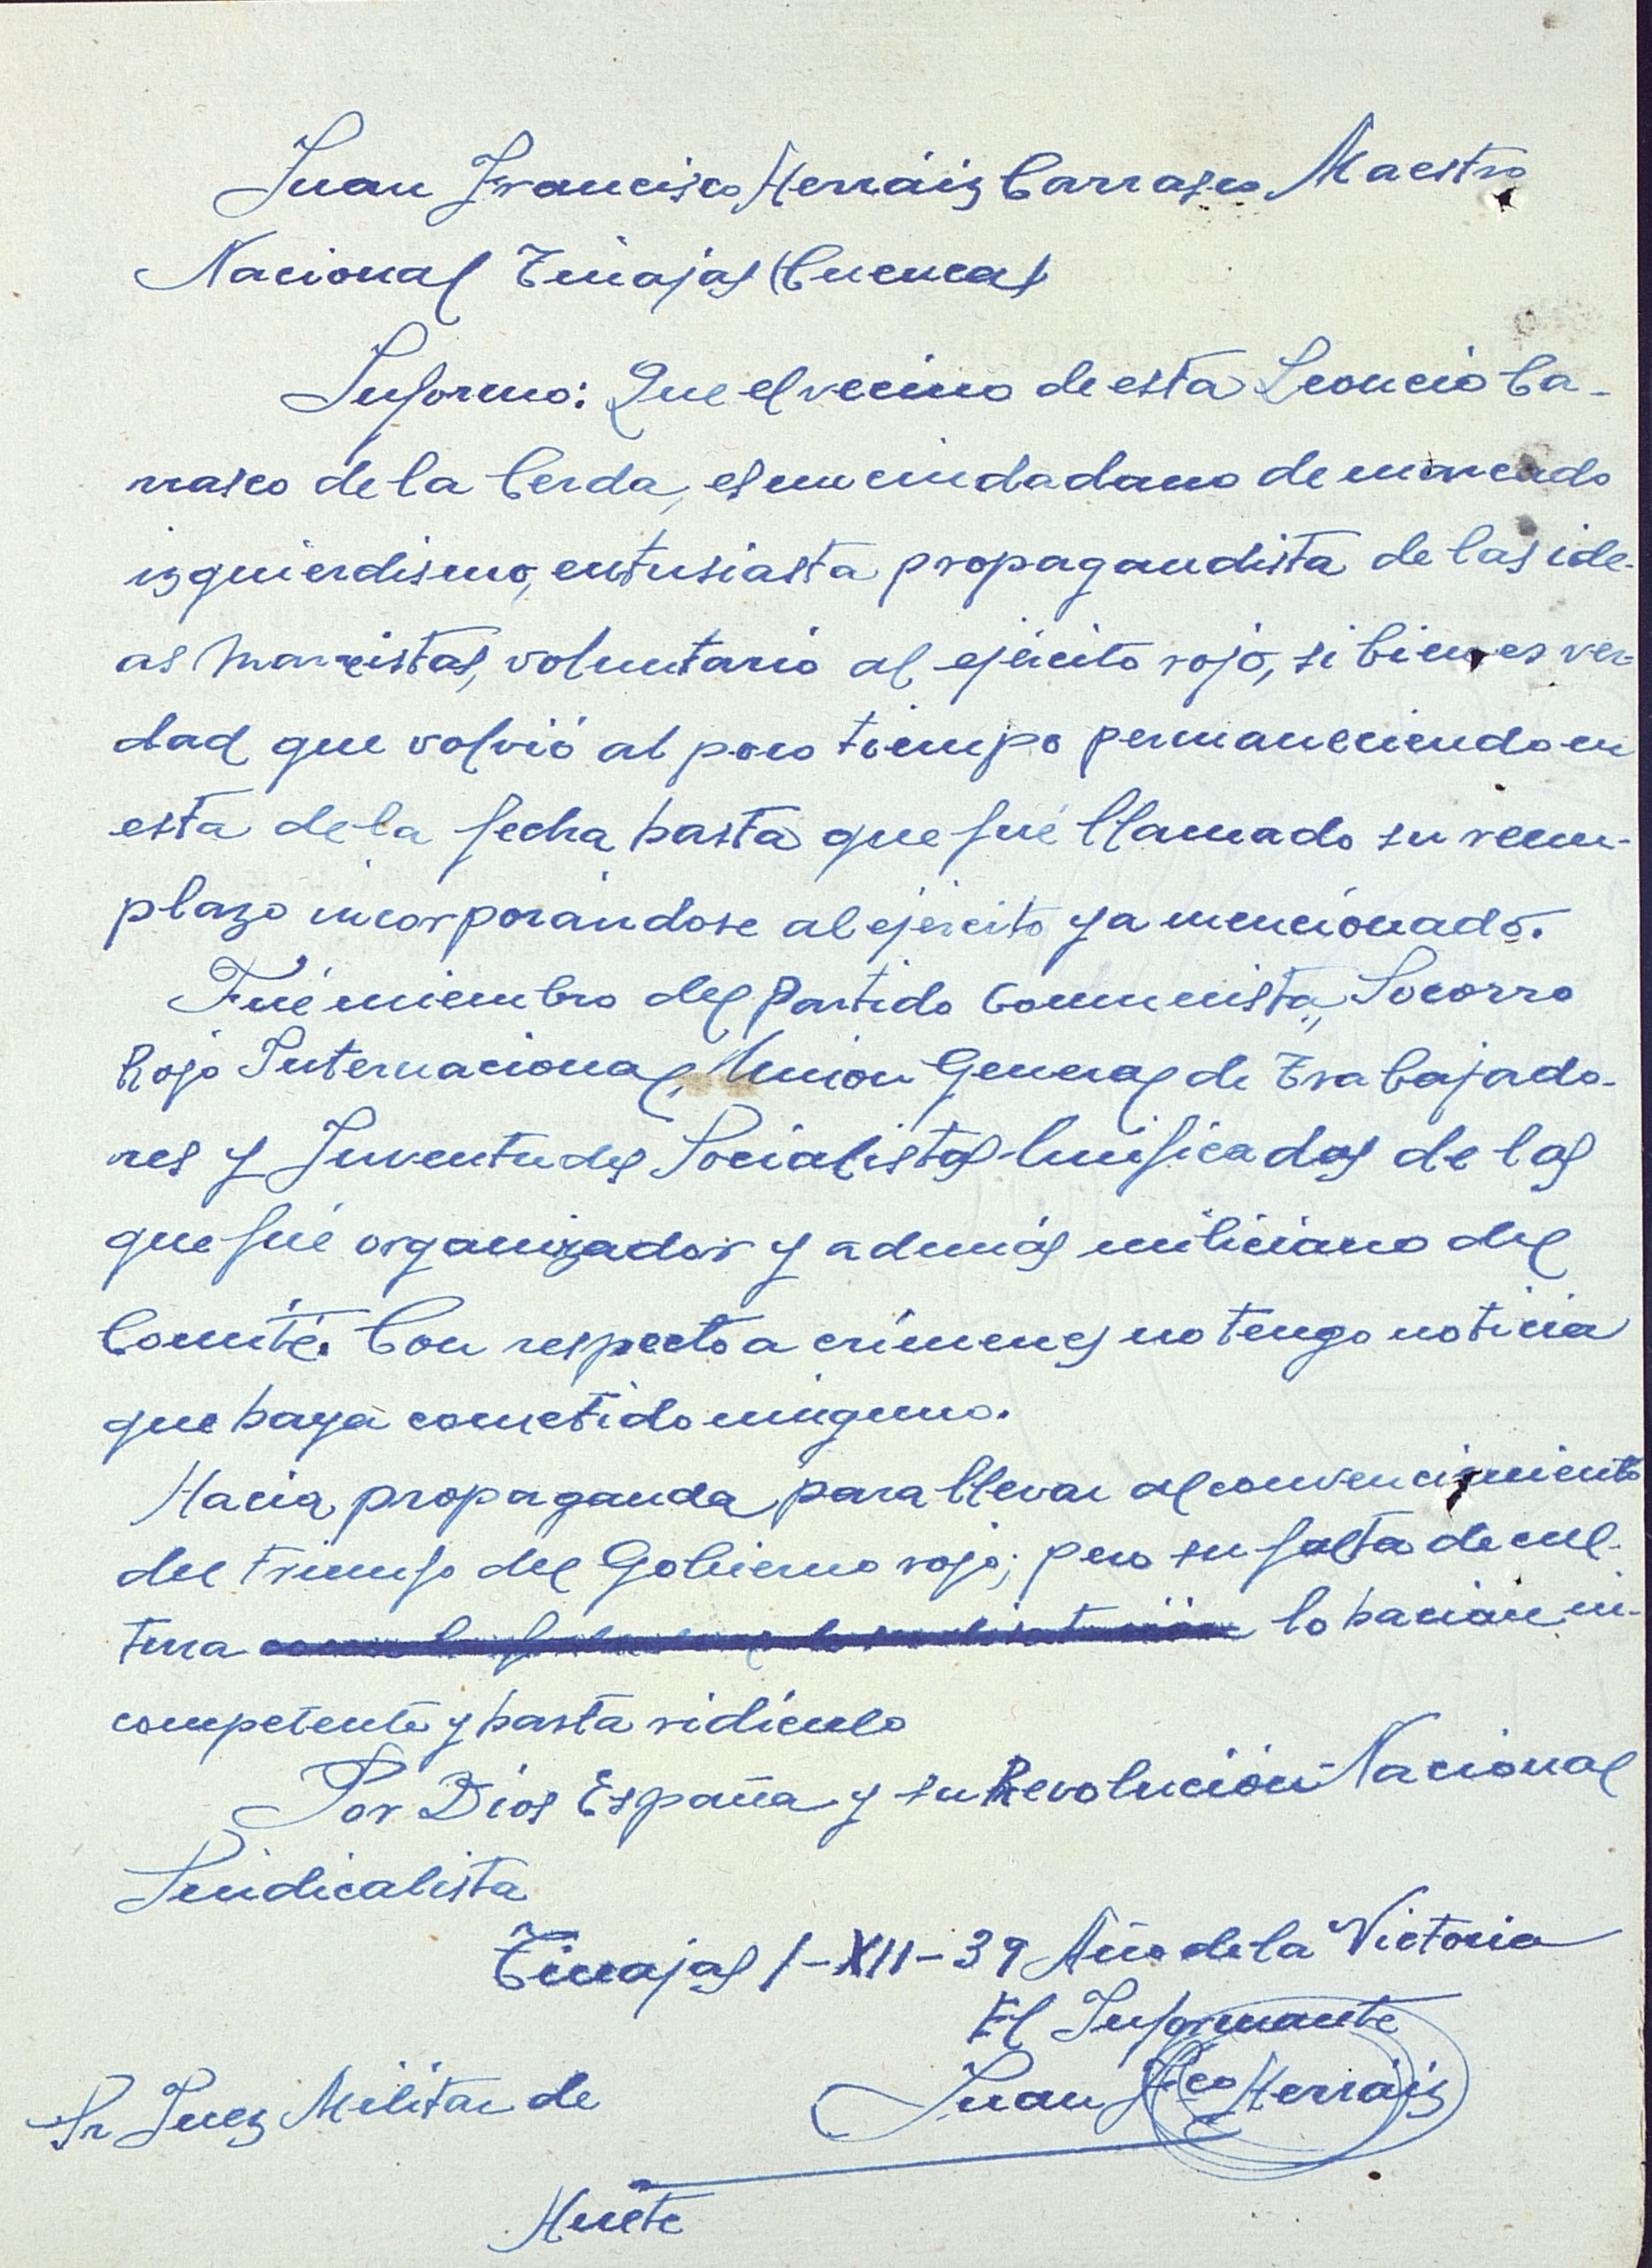 Juan Francisco Herráiz Carrasco Maestro
Nacional Tinajas (Cuenca)
Informo: Que el vecino de esta Leoncio Ca-
rrasco de la Cerda, es un ciudadano de marcado
izquierdismo, entusiasta propagandista de las ide-
as marxistas, voluntario al ejército rojo, si bien es ver-
dad que volvió al poco tiempo permaneciendo en
esta de la fecha hasta que fué llamado su reem-
plazo incorporándose al ejército ya mencionado.
Fué miembro del Partido Comunista, Socorro
Rojo Internacional, Union General de Trabajado-
res y Juventudes Socialistas Unificadas de las
que fué organizador y además miliciano del
Comité. Con respecto a crímenes no tengo noticia
que haya cometido ninguno.
Hacia propaganda para llevar al convencimiento
del triunfo del Gobierno rojo; pero su falta de cul-
tura lo hacian in-
competente y hasta ridículo
Por Dios España y su Revolución Nacional
Sindicalista
Tinajas 1-XII-39 Año de la Victoria
El Informante
Juan Fco Herráiz
Sr Juez Militar de
Huete